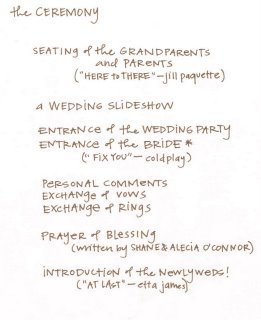 the CEREMONY
SEATING of the GRANDPARENTS
and PARENTS
("HERE to THERE"—jill paquette)
a WEDDING SLIDESHOW
ENTRANCE of the WEDDING PARTY
ENTRANCE of the BRIDE *
("FIX YOU"—coldplay)
PERSONAL COMMENTS
EXCHANGE of VOWS
EXCHANGE of RINGS
PRAYER of BLESSING
(written by SHANE & ALECIA O'CONNOR)
INTRODUCTION of the NEWLYWEDS!
("AT LAST"—etta james)